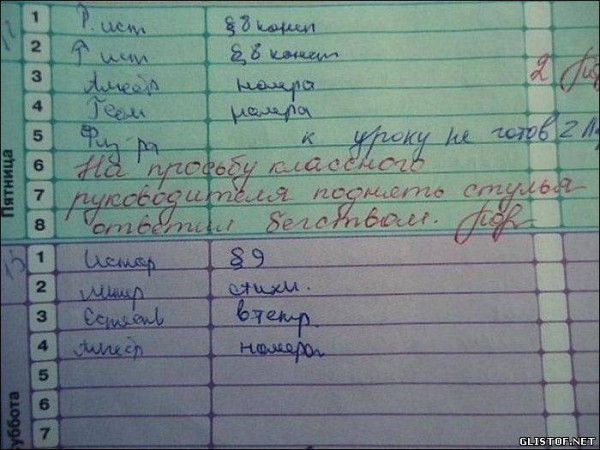 1 Р. ист § 8 консп
2 Р ист § 8 консп
3 Алгебр номера 2
4 Геом номера
5 Физ-ра к уроку не готов 2
6 На просьбу классного
7 руководителя поднять стулья
8 ответил бегством.
Пятница
1 Истор § 9
2 Литер стихи.
3 Естеств в тетр.
4 Алгебр номера
5
6
7
Суббота
GLISTOF.NET